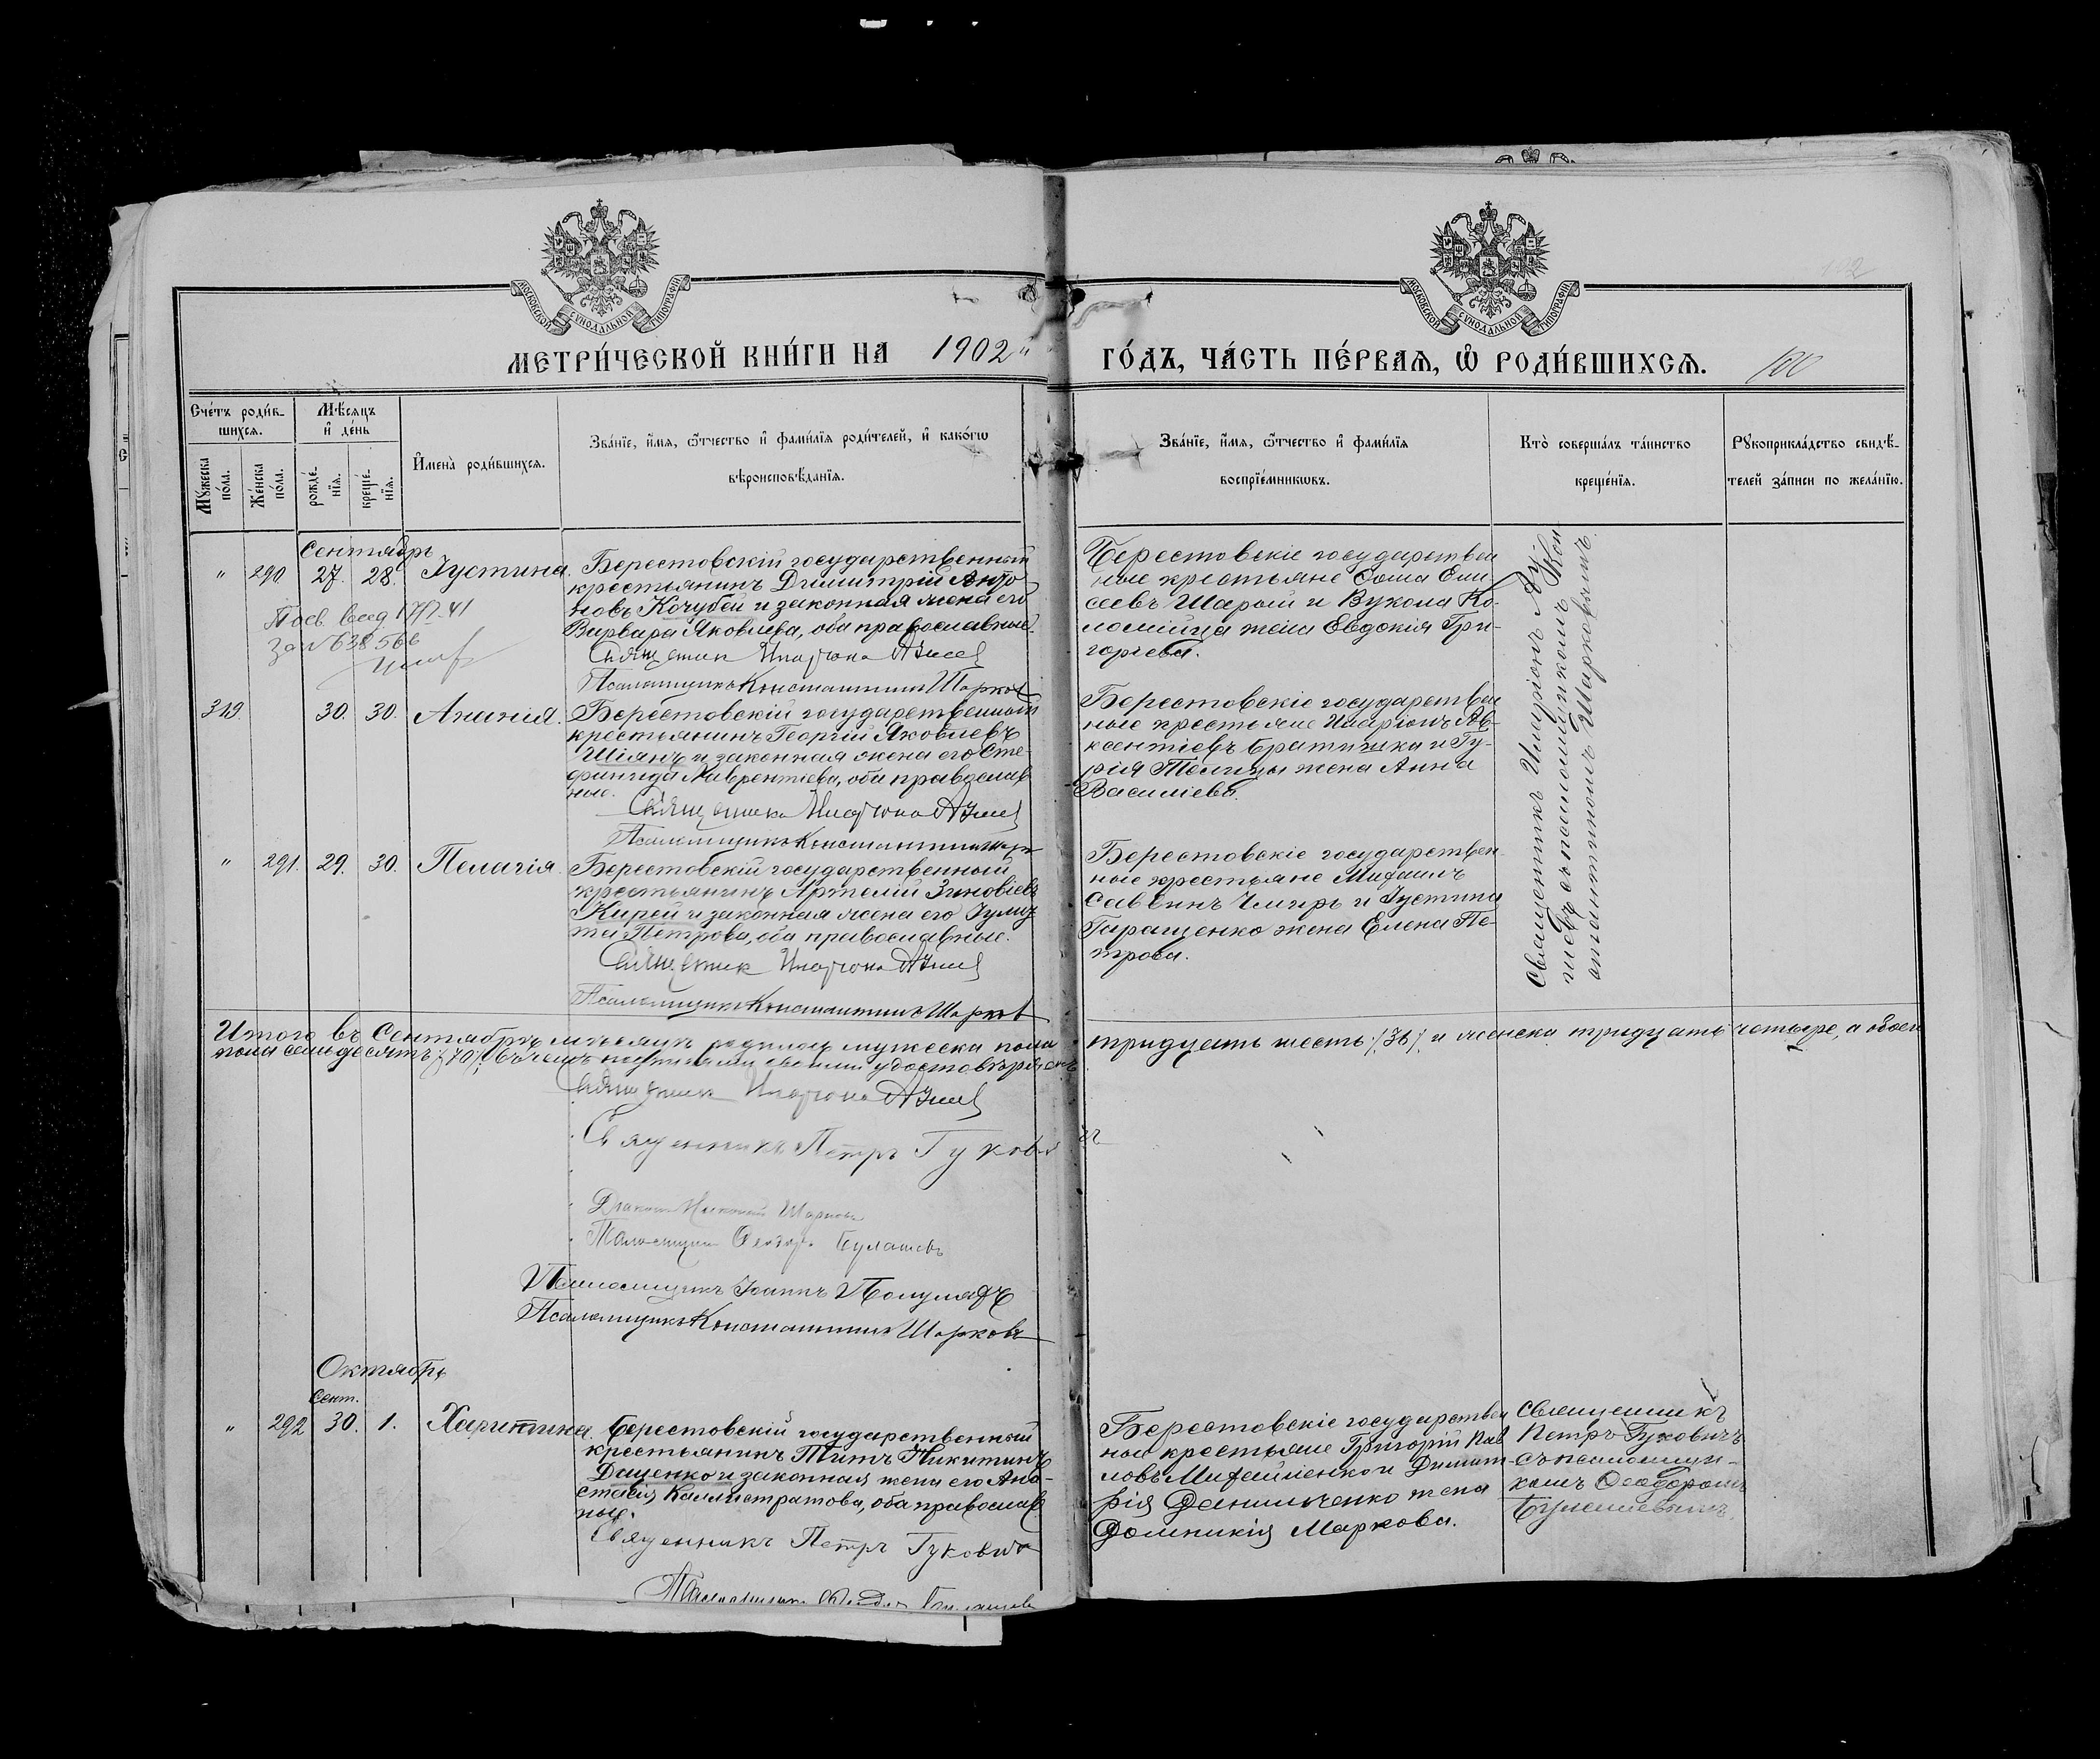 МОСКОВСКОЙ СѴНОДАЛЬНОЙ ТИПОГРАФІИ
МОСКОВСКОЙ СѴНОДАЛЬНОЙ ТИПОГРАФІИ
МЕТРИ́ЧЕСКОЙ КНИ́ГИ НА 1902 ГО́ДЪ, ЧА́СТЬ ПЕ́РВАѦ, Ѡ҆ РОДИ́ВШИХСѦ. 100
Сче́тъ роди́в-
шихсѧ.
Мѣ́сѧцъ
и҆ де́нь
Му́жеска
по́ла.
Же́нска
по́ла.
рожде́-
нїѧ.
креще́-
нїѧ.
И҆мена̀ роди́вшихсѧ.
Зва́нїе, и҆́мѧ, ѻ҆́тчество и҆ фами́лїѧ роди́телей, и҆ како́гѡ
вѣроисповѣ́данїѧ.
Зва́нїе, и҆́мѧ, ѻ҆́тчество и҆ фами́лїѧ
воспрїе́мникѡвъ.
Кто̀ соверша́лъ та́инство
креще́нїѧ.
Рꙋкоприкла́дство свидѣ́-
телей за́писи по жела́нїю.
Сентябрь
" 290 27. 28. Іустина.
Берестовскій государственный
крестьянинъ Димитрій Анто-
новъ Кочубей и законная жена его
Варвара Яковлева, оба православные.
Священник Илларіонъ
Псаломщикъ Константинъ Шарков
за № 638566
Берестовскіе государствен
ные крестьяне Сома Ели-
сеевъ Шарый и Вукола Ко-
ломійца жена Евдокія Гри-
горіева.
Священникъ Иларіонъ
съ псаломщикомъ Кон
стантиномъ Шарковымъ.
319. 30. 30. Ананія.
Берестовскій государственный
крестьянинъ Георгій Яковлевъ
Шіянъ и законная жена его Сте-
фанида Лаврентіева, оба православ
ные.
Священника Илларіона
Псаломщикъ Константинъ
Берестовскіе государствен
ные крестьяне Иларіонъ Ав-
ксентіевъ Братишка и Гу-
рія Телицы жена Анна
Василіева.
" 291. 29. 30. Пелагія.
Берестовскій государственный
крестьянинъ Артемій Зиновіевъ
Кирей и законная жена его Іулит-
та Петрова, оба православные.
Священник Илларіонъ
Псаломщикъ Константинъ Шарков
Берестовскіе государствен
ные крестьяне Михаилъ
Саввинъ Чмиръ и Іустина
Геращенко жена Елена Пе-
трова.
Итого въ Сентябрѣ мѣсяцѣ родилось мужеска пола тридцать шесть /36/ и женска тридцать четыре, а обоего
пола семьдесятъ /70/. Въ чемъ подписями своими удостовѣряемъ
Священник Илларіонъ
Священникъ Петръ Гукович
Діаконъ Шарковъ
Псаломщикъ Ѳеодоръ Булашевъ
Псаломщикъ Іоаннъ
Псаломщикъ Константинъ Шарковъ
Октябрь
Сент.
" 292 30. 1. Харитина.
Берестовскій государственный
крестьянинъ Титъ Никитинъ
Даценко и законная жена его Ана-
стасія Каллистратова, оба православ
ные.
Священникъ Петръ Гуковичъ
Псаломщикъ
Берестовскіе государствен
ные крестьяне Григорій Пав
ловъ Михайленко и Димит-
рія Данильченко жена
Домникія Маркова.
Священникъ
Петръ Гуковичъ
съ псаломщи-
комъ Ѳеодоромъ
Булашевымъ.